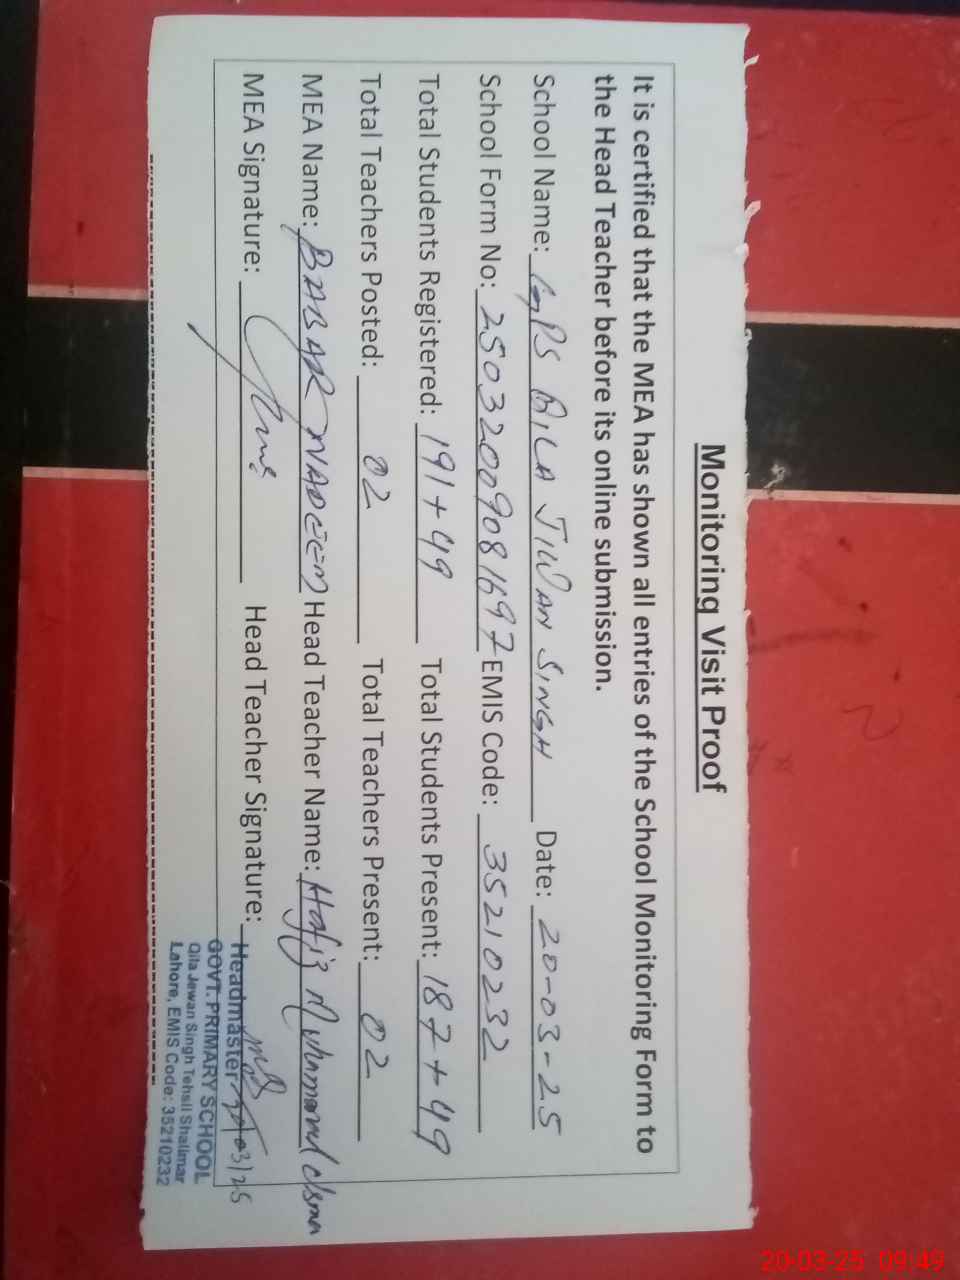 Monitoring Visit Proof
It is certified that the MEA has shown all entries of the School Monitoring Form to
the Head Teacher before its online submission.
School Name: GPS QILA JIWAN SINGH Date: 20-03-25
School Form No: 25032009081697 EMIS Code: 35210232
Total Students Registered: 191+49 Total Students Present: 187+49
Total Teachers Posted: 02 Total Teachers Present: 02
MEA Name: BABAR NADEEM Head Teacher Name: Hafiz Muhammad Usman
MEA Signature: Head Teacher Signature:
Headmaster
GOVT. PRIMARY SCHOOL
Qila Jewan Singh Tehsil Shalimar
Lahore, EMIS Code: 35210232
20-03-25 09:49